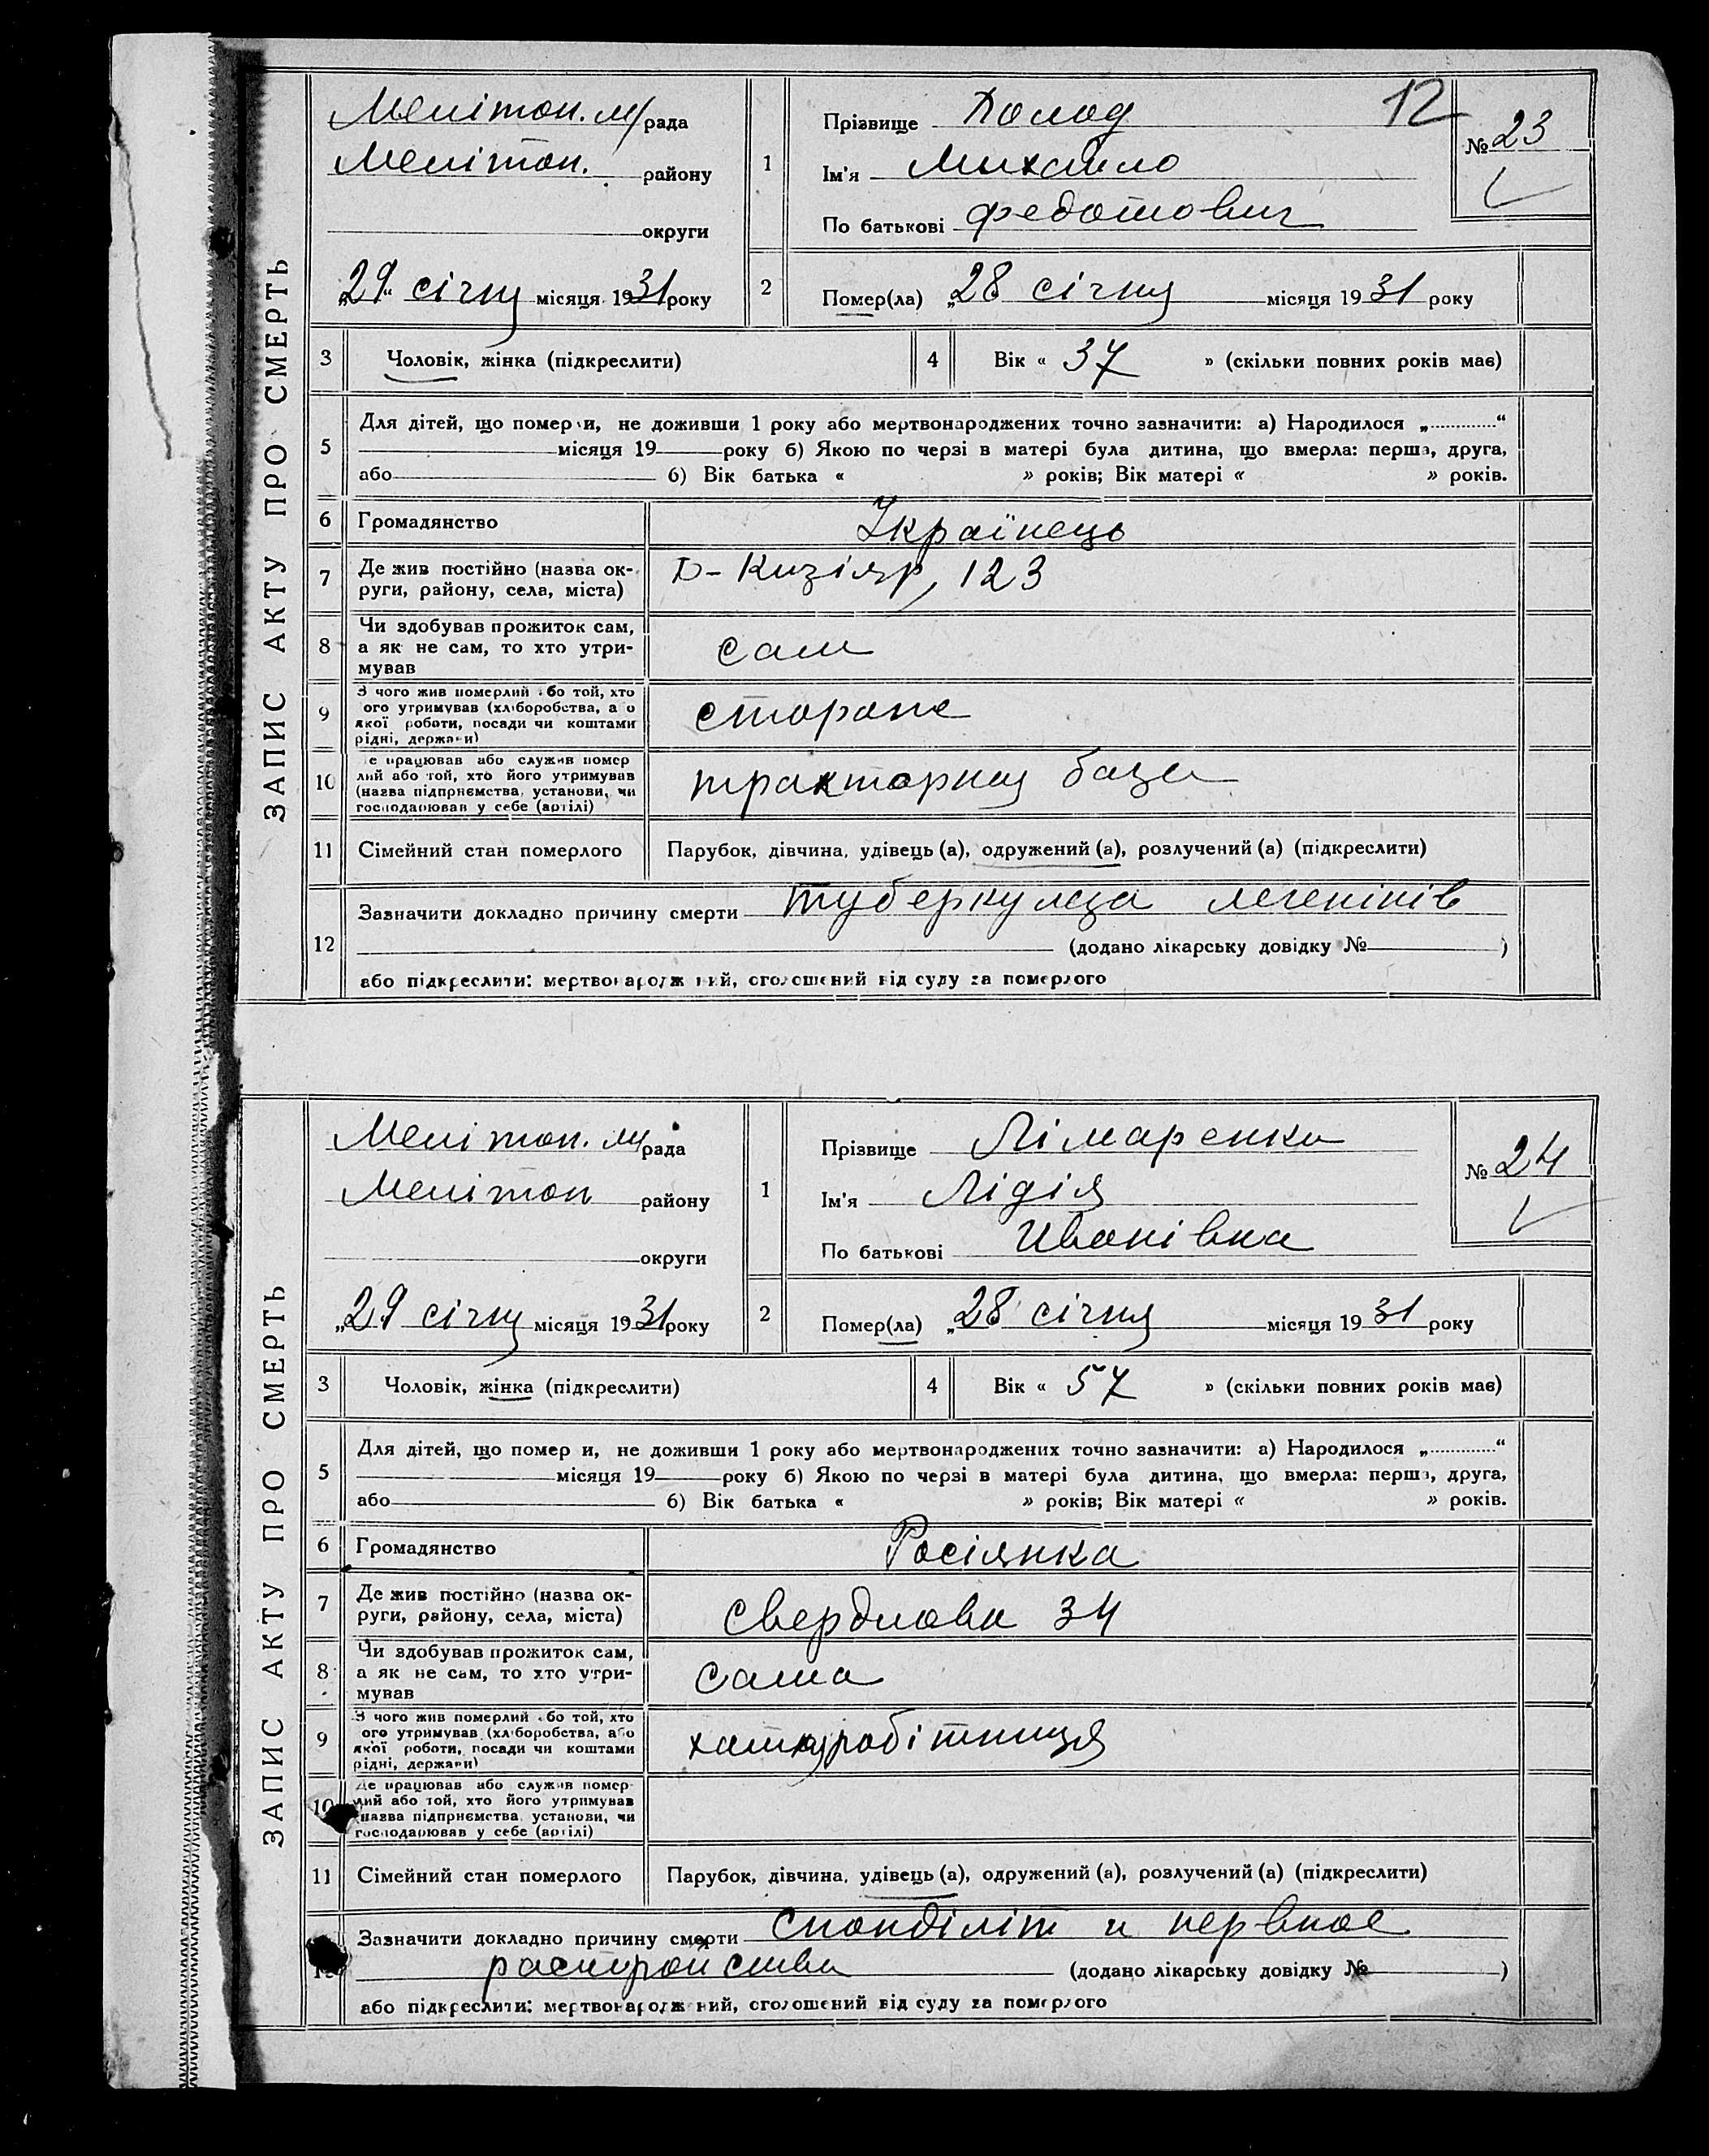 ЗАПИС АКТУ ПРО СМЕРТЬ
Мелітоп. м/рада
Мелітоп. району
округи
„29“ січня місяця 1931 року
1
Прізвище Холод
Ім'я Михайло
По батькові Федотович
12
№ 23
2
Помер(ла) „28 січня місяця 1931 року
3 Чоловік, жінка (підкреслити)
4 Вік « 37 » (скільки повних років має)
5 Для дітей, що померли, не доживши 1 року або мертвонароджених точно зазначити: а) Народилося „ “
місяця 19 року б) Якою по черзі в матері була дитина, що вмерла: перша, друга,
або б) Вік батька « » років; Вік матері « » років.
6 Громадянство Українець
7 Де жив постійно (назва ок-
руги, району, села, міста)
Кизіяр, 123
8 Чи здобував прожиток сам,
а як не сам, то хто утри-
мував
сам
9 З чого жив померлий або той, хто
ого утримував (хліборобства, або
якої роботи, посади чи коштами
рідні, держави)
сторож
10 Де працював або служив помер
лий або той, хто його утримував
(назва підприємства, установи, чи
господарював у себе (артілі)
тракторна база
11 Сімейний стан померлого Парубок, дівчина, удівець (а), одружений (а), розлучений (а) (підкреслити)
12 Зазначити докладно причину смерти туберкульоза легенів
(додано лікарську довідку № )
або підкреслити: мертвонароджений, оголошений від суду за померлого
ЗАПИС АКТУ ПРО СМЕРТЬ
Мелітоп. м/рада
Мелітоп району
округи
„29 січня місяця 1931 року
1
Прізвище Лімаренко
Ім'я Лідія
По батькові Иванівна
№ 24
2
Помер(ла) „28 січня місяця 1931 року
3 Чоловік, жінка (підкреслити)
4 Вік « 57 » (скільки повних років має)
5 Для дітей, що померли, не доживши 1 року або мертвонароджених точно зазначити: а) Народилося „ “
місяця 19 року б) Якою по черзі в матері була дитина, що вмерла: перша, друга,
або б) Вік батька « » років; Вік матері « » років.
6 Громадянство Росіянка
7 Де жив постійно (назва ок-
руги, району, села, міста)
Свердлова 34
8 Чи здобував прожиток сам,
а як не сам, то хто утри-
мував
сама
9 З чого жив померлий або той, хто
ого утримував (хліборобства, або
якої роботи, посади чи коштами
рідні, держави)
хатня робітниця
10 Де працював або служив помер-
лий або той, хто його утримував
(назва підприємства, установи, чи
господарював у себе (артілі)
11 Сімейний стан померлого Парубок, дівчина, удівець (а), одружений (а), розлучений (а) (підкреслити)
12 Зазначити докладно причину смерти спонділіт и нервное
расстройства (додано лікарську довідку № )
або підкреслити: мертвонароджений, оголошений від суду за померлого